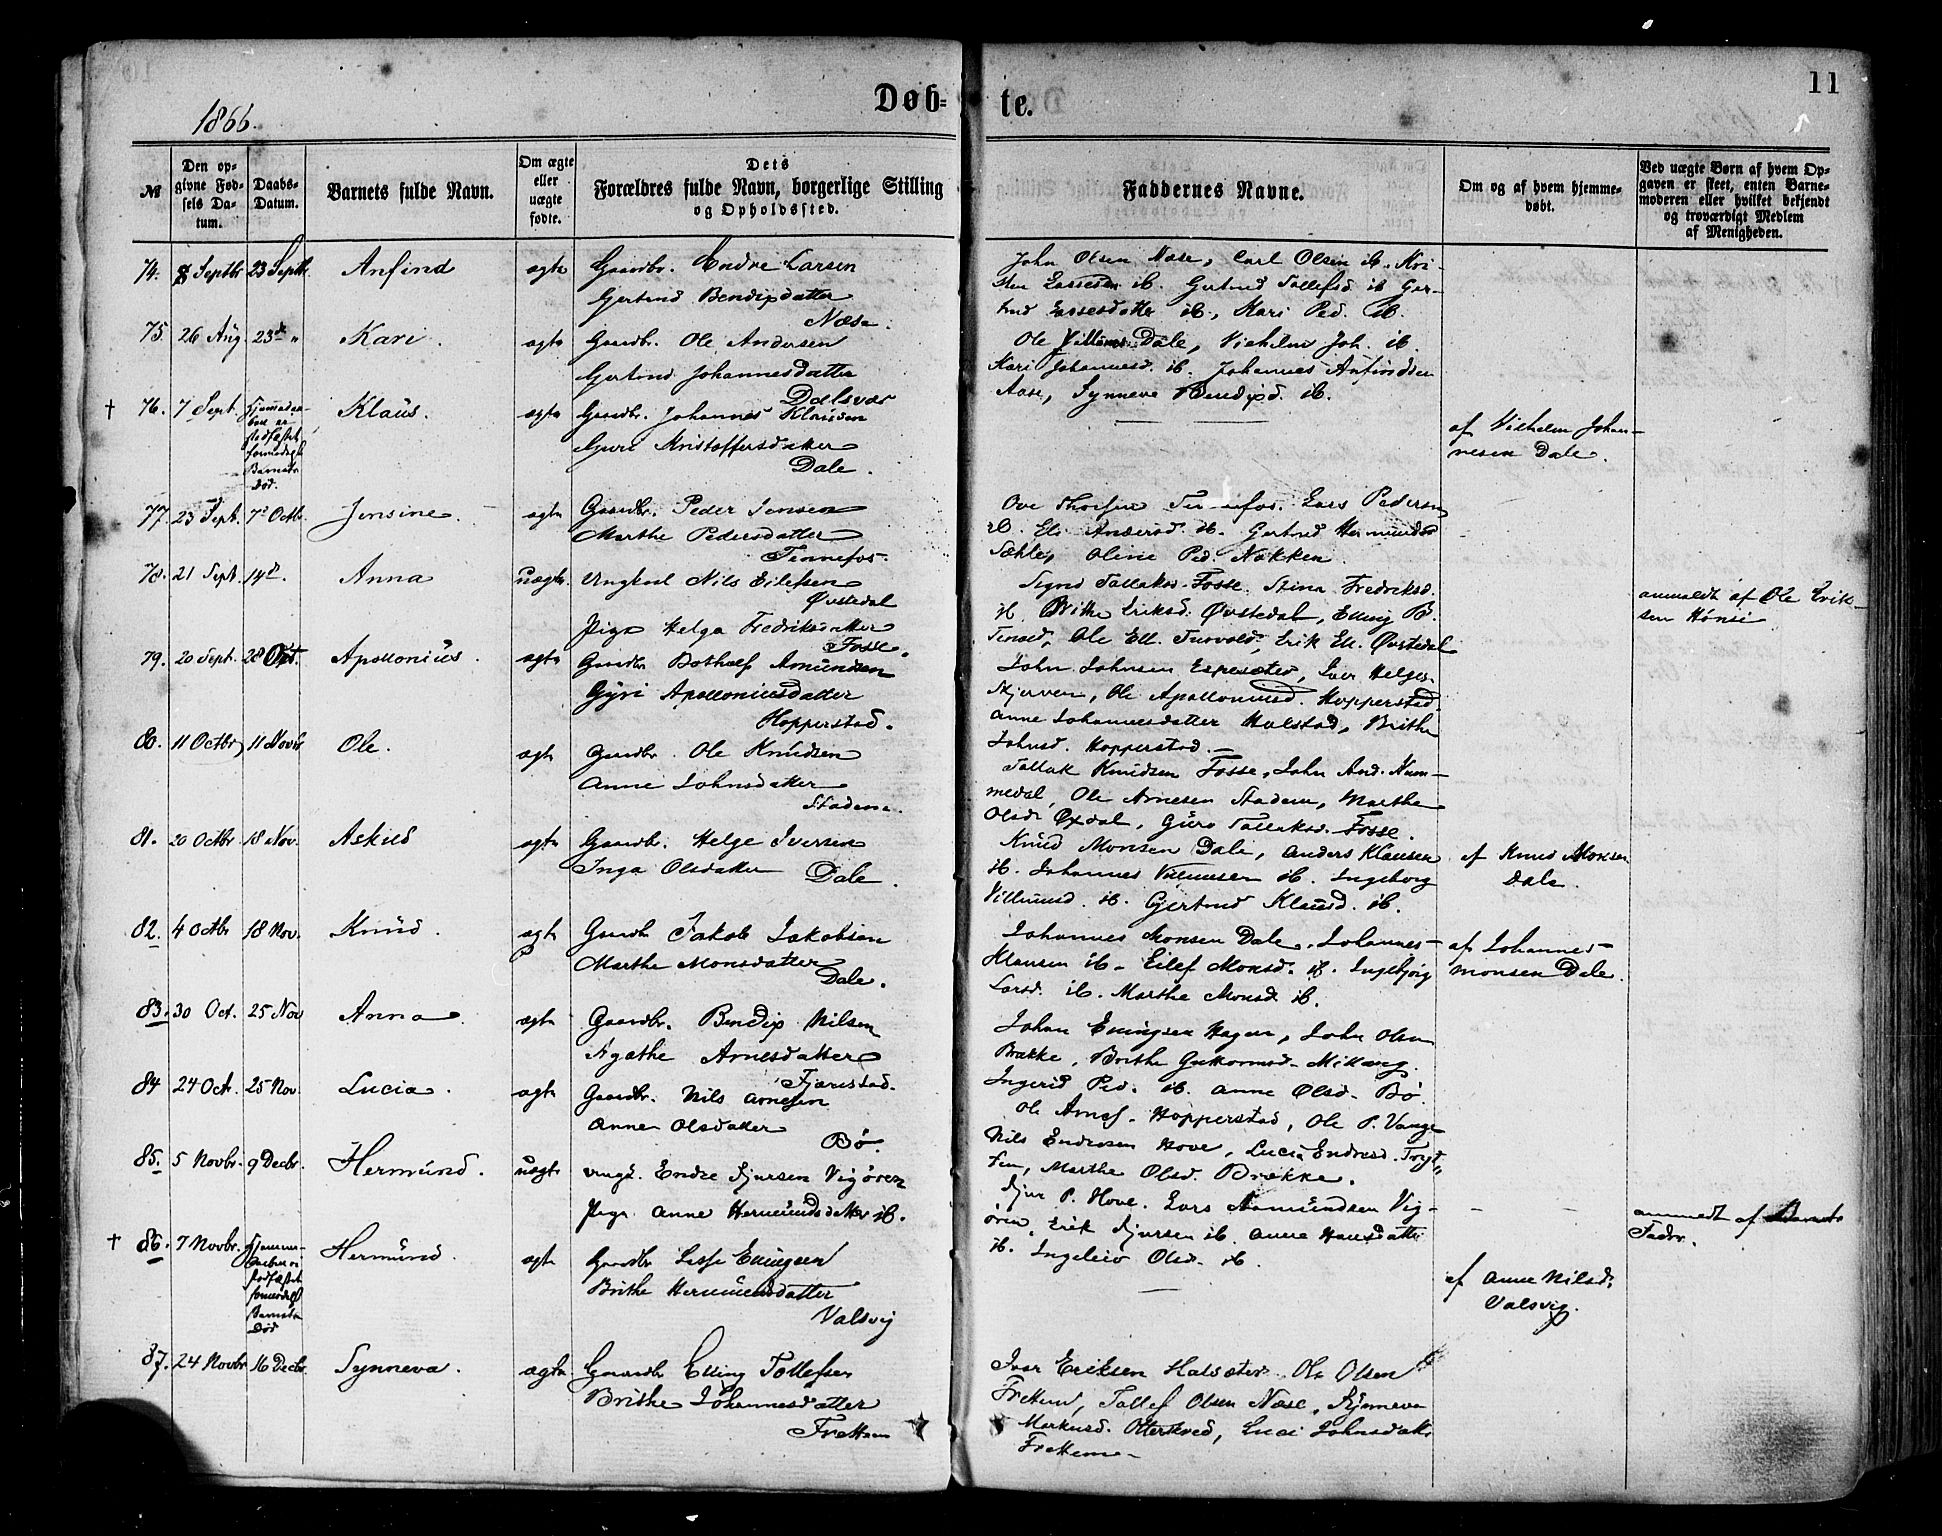 11
1866.
Døb-
te.
№
Den op-
givne Fød-
sels Da-
tum.
Daabs-
Datum.
Barnets fulde Navn.
Om ægte
eller
uægte
fødte.
Dets
Forældres fulde Navn, borgerlige Stilling
og Opholdssted.
Faddernes Navne.
Om og af hvem hjemme-
døbt.
Ved uægte Børn af hvem Op-
gaven er skeet, enten Barne-
moderen eller hvilket bekjendt
og troværdigt Medlem
af Menigheden.
74. 8 Septbr 23 Septbr Anfind ægte Gaardbr. Endre Larsen
Gertrud Bendixdatter
Næse.
John Olsen Næse, Carl Olsen ib. Kri-
sten Lassesen ib. Gertrud Tollefsd ib Ger-
trud Lassesdatter ib, Kari Ped. ib.
75. 26 Aug. 23de " Kari. ægte Gaardbr. Ole Andersen
Gertrud Johannesdatter
Dalsvær
Ole Dale, Vilhelm Joh. ib.
Kari Johannesd. ib. Johannes Anfindsen
Aase, Synneve Bendixd. ib.
† 76. 7 Sept. Hjemmedaa-
ben er
stadfæstet
formedelst
Barnets
Død.
Klaus. ægte Gaardbr. Johannes Klausen
Guri Kristoffersdatter
Dale.
af Vilhelm Johan-
nesen Dale.
77. 23 Sept. 7de Octb. Jensine. ægte Gaardbr. Peder Jensen
Marthe Pedersdatter
Tennefos.
Ove Thorsen Tennefos. Lars Pedersen
ib. Eli Andersd. ib. Gertrud Hermunds
Oline Ped. Nøkken.
78. 21 Sept. 14d. Anna uægte. Ungkarl Nils Eilefsen
Øvstedal
Pige Helga Fredriksdatter
Fosse.
Sigrid Tollaksd. Fosse. Stina Fredriksd.
ib. Brithe Eriksd. Øvstedal, Elling B.
Ole Ell. Turvold, Erik Ell. Øvstedal
anmeldt af Ole Erik-
sen Hønsi
79. 20 Sept. 28 Oct. Apollonius. ægte Gaardbr Botholf Amundsen
Gyri Apolloniusdatter
Hopperstad.
John Johnsen Espesæter, Iver Helges.
Skjerven, Ole Apolloniusd. Hopperstad
Anne Johannesdatter Halstad, Brithe
Johnsd. Hopperstad.
80. 11 Octbr 11 Novbr. Ole. ægte Gaardbr. Ole Knudsen
Anne Johnsdatter
Stadem.
Tollak Knudsen Fosse, John And. Num-
medal, Ole Arnesen Stadem, Marthe
Olsdr Øxdal, Guro Tollaksd. Fosse.
81. 20 Octbr 18 Nov. Askild ægte Gaardbr. Helge Iversen
Inga Olsdatter Dale.
Knud Monsen Dale, Anders Klausen
ib. Johannes Villumsen ib. Ingeborg
Villumsd. ib. Gjertrud Klausd. ib.
af Knud Monsen
Dale.
82. 4 Octbr 18 Nov. Knud. ægte Gaardb Jakob Jakobsen
Marthe Monsdatter
Dale.
Johannes Monsen Dale, Johannes
Klausen ib. Eilef Monsd. ib. Ingebjørg
Larsd. ib. Marthe Monsd. ib.
af Johannes
Monsen Dale.
83. 30 Oct. 25 Nov Anna. ægte Gaardbr. Bendix Nilsen
Agathe Arnesdatter
Fjærestad.
Johan Ellingsen Hagen, John Olsen
Brække, Brithe Guttormsd.
Ingerid Ped. ib. Anne Olsd. Bø.
84 24 Oct. 25 Nov. Lucia. ægte Gaardbr. Nils Arnesen
Anne Olsdatter
Bø.
Ole Arnes. Hopperstad, Ole P. Vange
Nils Endresen Hove, Lucia Endresd. Tryt-
ten, Marthe Olsd. Brække.
85. 5 Novbr. 9 Decbr. Hermund. uægte ungk. Endre Sjursen Vigøren
Pige Anne Hermundsdatter ib.
Sjur P. Hove. Lars Aamundsen Vig-
øren, Erik Sjursen ib. Anne Hansdatter
ib. Ingeleiv Olsd. ib.
anmeldt af Barnets
Fader.
† 86. 7 Novbr. Hjemme-
daaben er
stadfæstet
formedelst
Barnets
Død
Hermund. ægte Gaardbr Lasse Ellingsen
Brithe Hermundsdatter
Valsvig
af Anne Nilsdr
Valsvig.
87. 24 Novbr 16 Decbr. Synneva. ægte Gaardbr Elling Tollefsen
Brithe Johannesdatter
Frettem
Ivar Eriksen Halsæter. Ole Olsen
Frettem, Tollef Olsen Næse, Synneva
Markusd. Otterskred, Luci Johnsdatt.
Frettem.